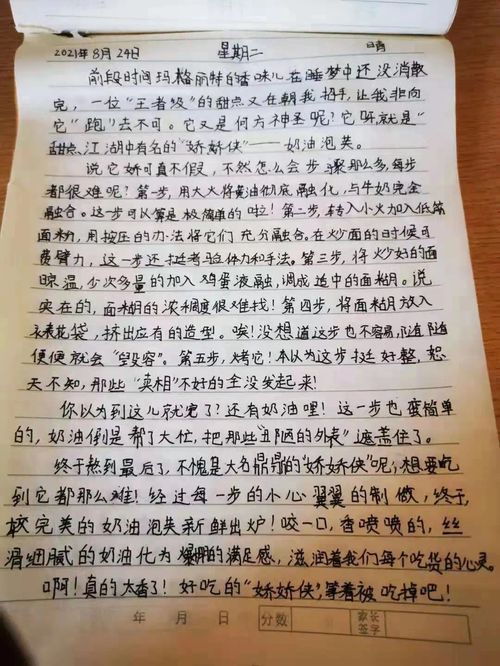 2021年8月24日 星期二 晴
前段时间玛格丽特的香味儿在睡梦中还没消散
完，一位“王者级”的甜点又在朝我招手，让我非向
它“跑”去不可。它又是何方神圣呢？它呀就是“
甜点江湖中有名的“娇娇侠”——奶油泡芙。
说它娇可真不假，不然怎么会步骤那么多，每步
都很难呢？第一步，用大火将黄油彻底融化，与牛奶完全
融合。这一步可以算是极简单的啦！第二步，转入小火加入低筋
面粉，用按压的办法将它们充分融合。在炒面的时候可
费臂力，这一步还挺考验体力和手法。第三步，将炒好的面
晾温，少次多量的加入鸡蛋液融，调成适中的面糊。说
实在的，面糊的浓稠度很难找！第四步，将面糊放入
裱花袋，挤出应有的造型。唉！没想道这步也不容易，随随
便便就会“毁容”。第五步，烤它！本以为这步挺好整，怒
天不知，那些“卖相”不好的全没发起来！
你以为到这儿就完了？还有奶油哩！这一步也蛮简单
的，奶油倒是帮了大忙，把那些“丑陋的外表”遮盖住了。
终于熬到最后了，不愧是大名鼎鼎的“娇娇侠”呢，想要吃
到它都那么难！经过每一步的小心翼翼的制做，终于，
较完美的奶油泡芙新鲜出炉！咬一口，香喷喷的，丝
滑细腻的奶油化为爆棚的满足感，滋润着我们每个吃货的心灵。
啊！真的太香了！好吃的“娇娇侠”，等着被吃掉吧！
年 月 日 分数 家长签字